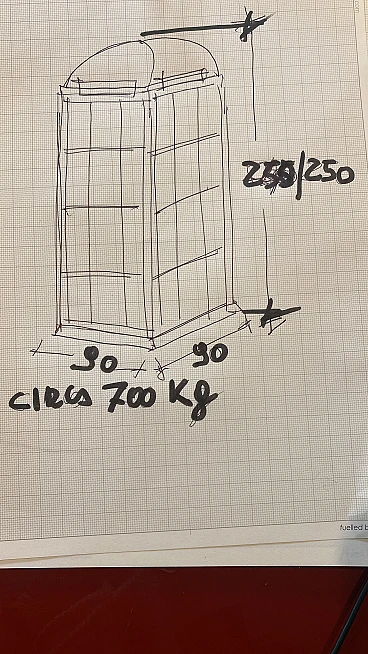 /250
90
90
CIRCA 700 Kg
fuelled b